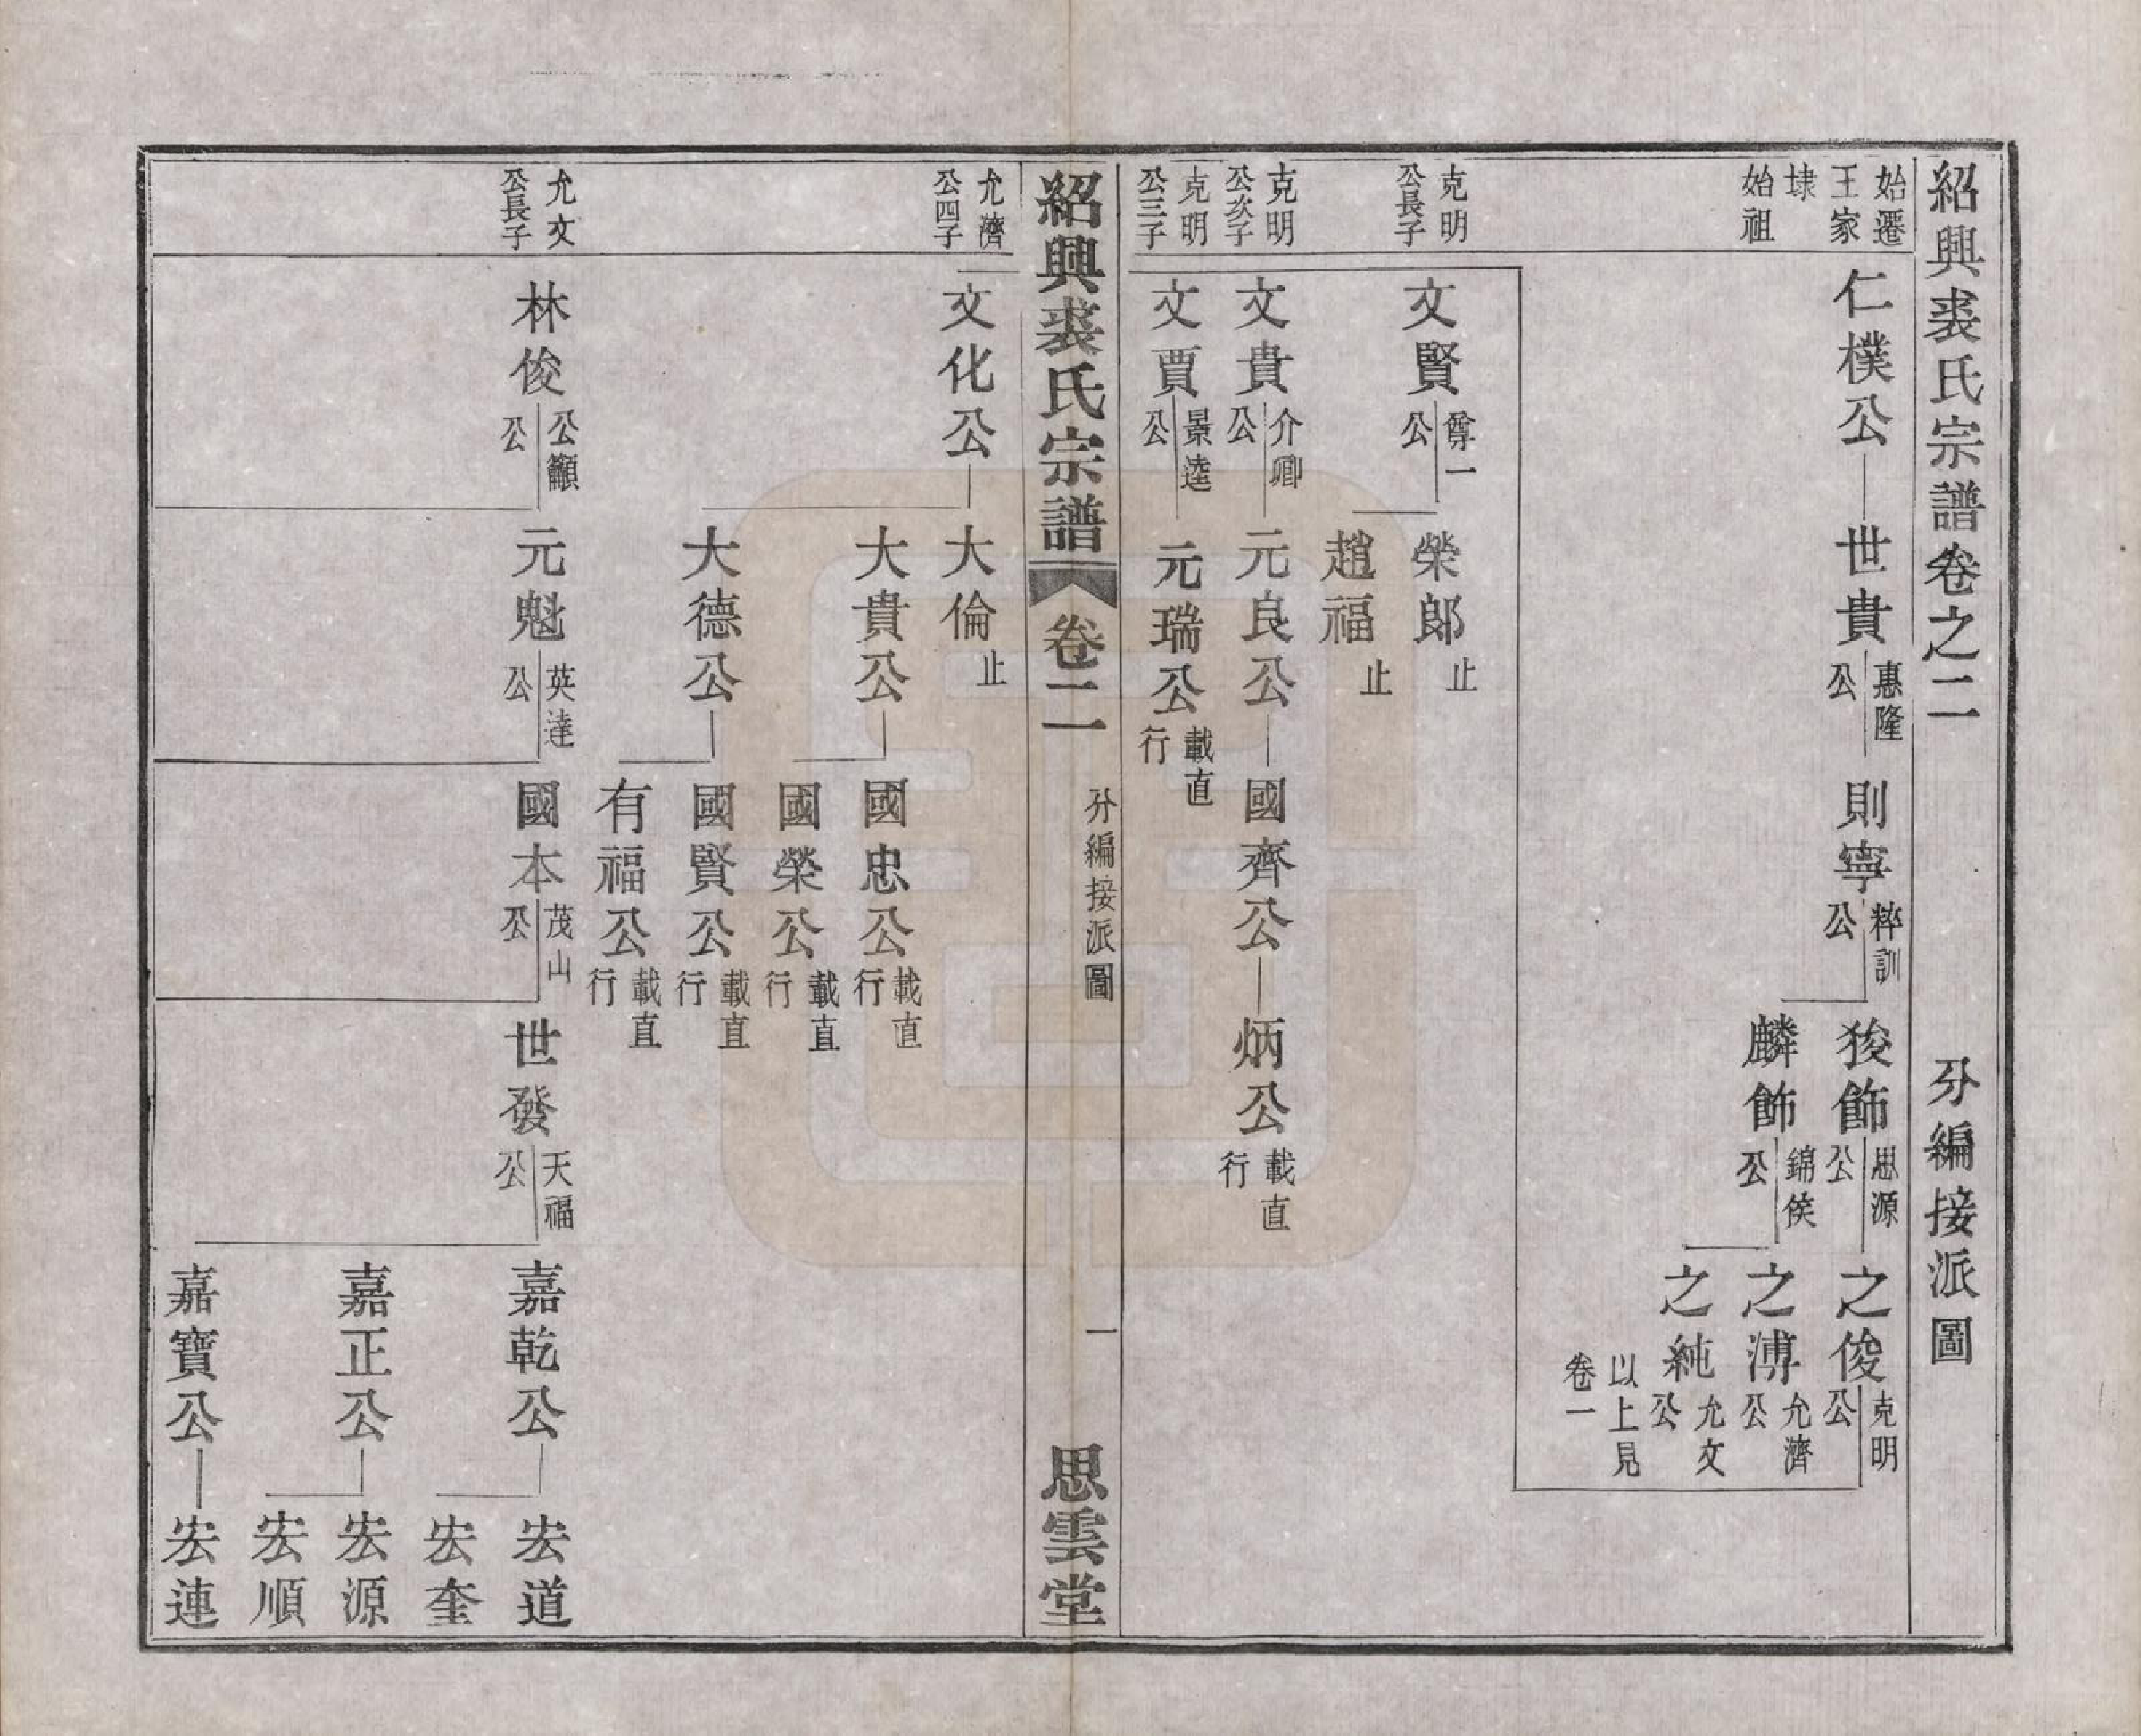 紹興裘氏宗譜卷之二 分編接派圖
始遷
王家
埭
始祖
仁樸公
世貴
惠隆
公
則寧
粹訓
公
狻飾
思源
公
麟飾
錦侯
公
之俊
克明
公
之溥
允濟
公
之純
允文
公
以上見
卷一
克明
公長子
文賢
尊一
公
榮郎止
趙福止
克明
公次子
文貴
介卿
公
元良公
國齊公
炳公
載直
行
克明
公三子
文賈
景逵
公
元瑞公
載直
行
紹興裘氏宗譜 卷二 分編接派圖 一 思雲堂
允濟
公四子
文化公
大倫止
大貴公
國忠公
載直
行
國榮公
載直
行
大德公
國賢公
載直
行
有福公
載直
行
允文
公長子
林俊
公籲
公
元魁
英達
公
國本
茂山
公
世發
天福
公
嘉乾公
宏道
宏奎
嘉正公
宏源
宏順
嘉寶公
宏連